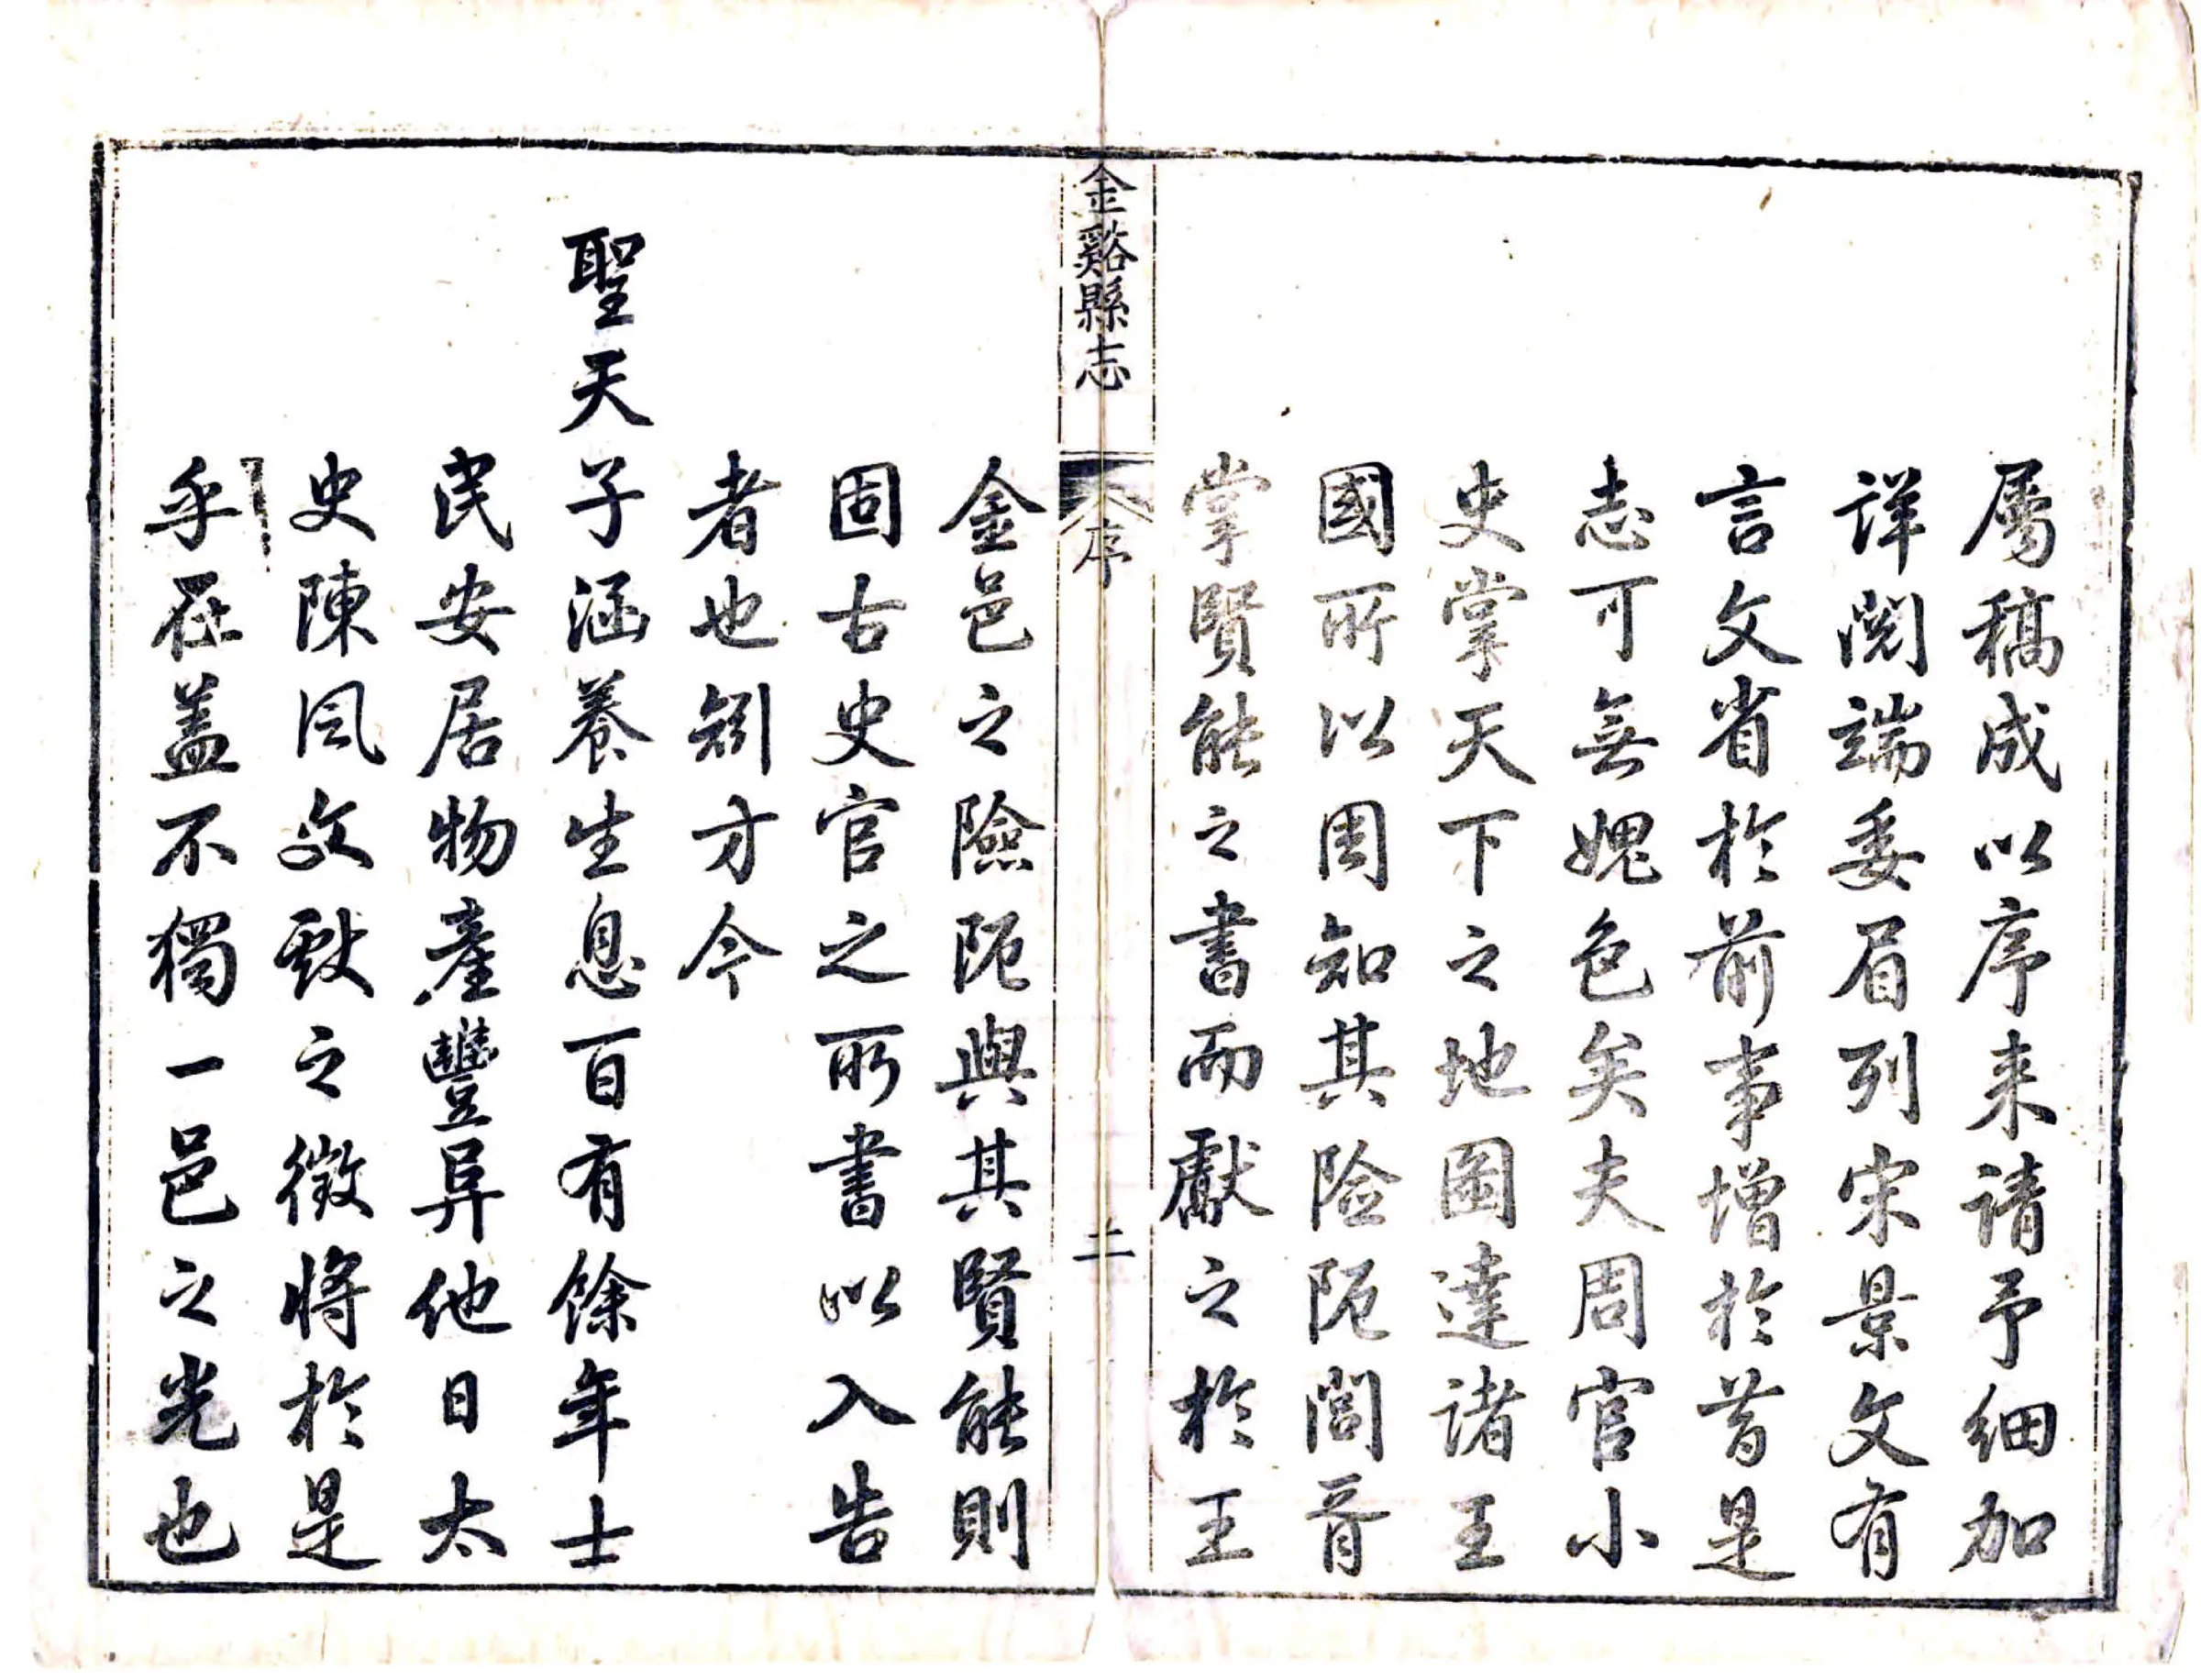 屬稿成以序来请予细加
详閲端委眉列宋景文有
言文省於前事增於昔是
志可無媿色矣夫周官小
史掌天下之地圖達诸王
國所以周知其险阨閭胥
掌賢能之書而獻之於王
金谿縣志
序
二
金邑之險阨與其賢能則
固古史官之所書以入告
者也矧方今
聖天子涵養生息百有餘年士
民安居物產豐阜他日太
史陳风文獻之徵将於是
乎在盖不獨一邑之光也